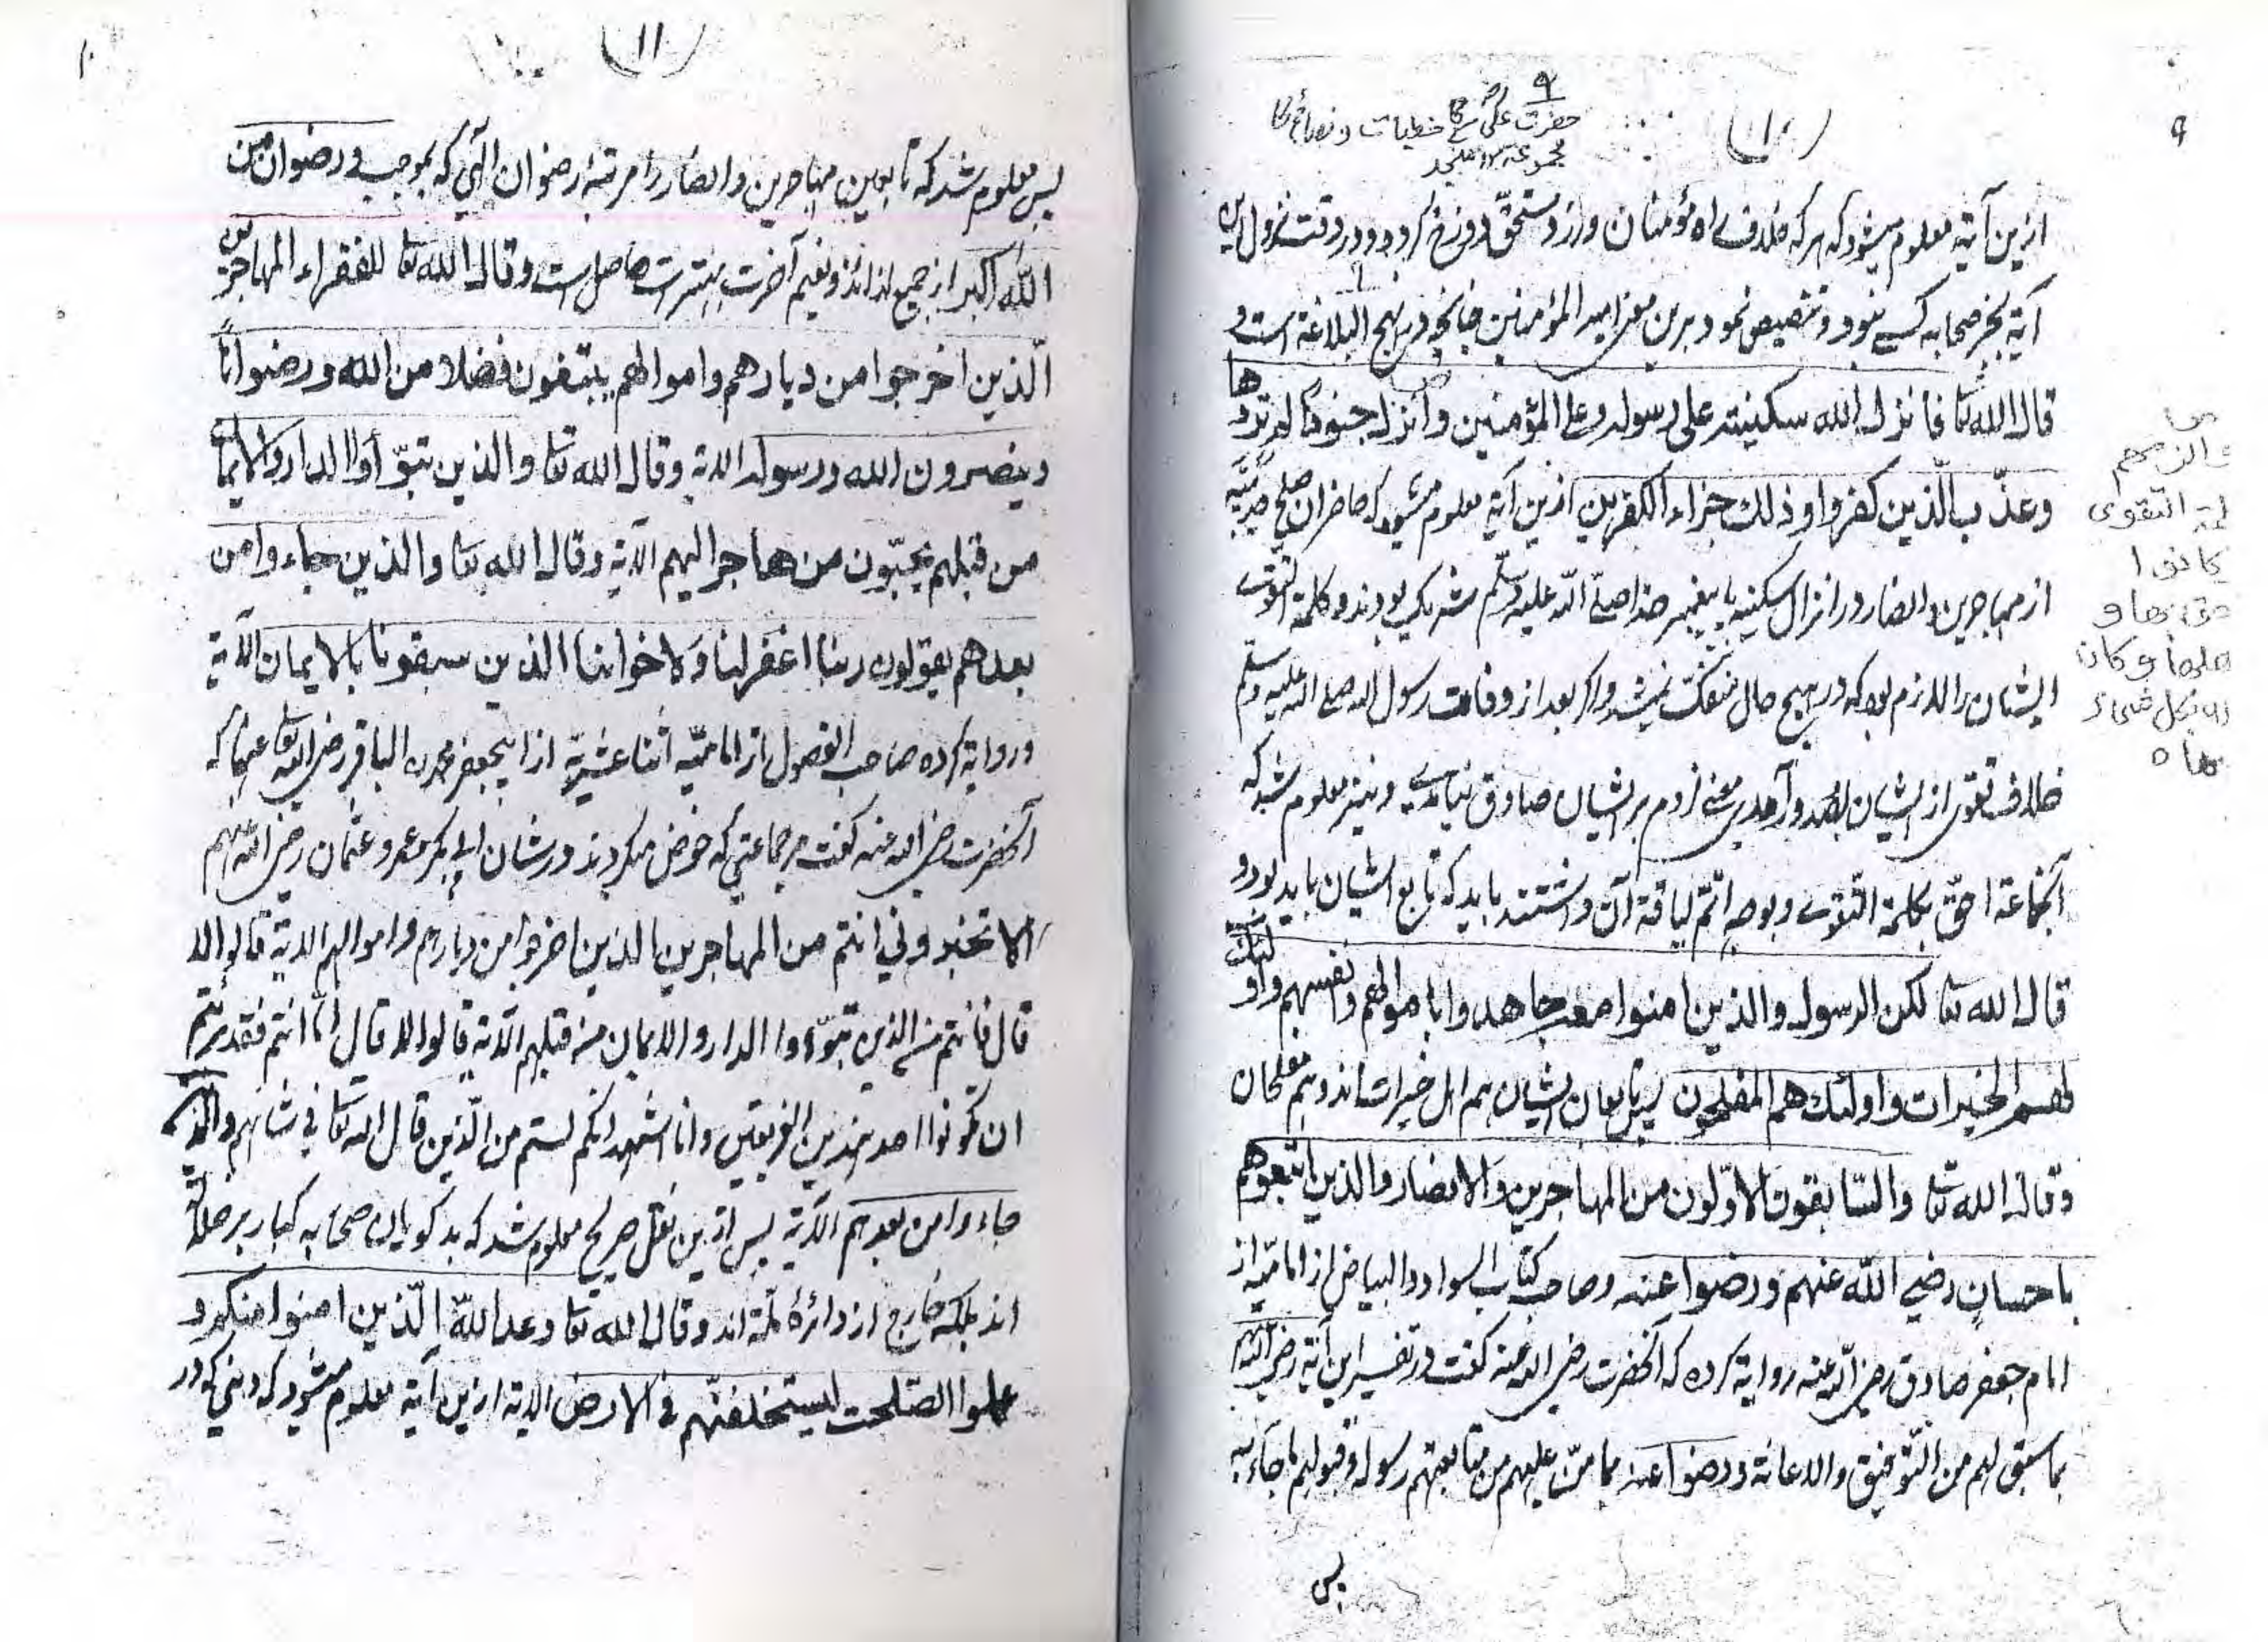 ۹
(۱۰)
۹
حضرت علیؓ کے خطبات و نصائح کا
مجموعہ
ازین آیة معلوم میشود که هر که خلاف راه مؤمنان ورزد مستحق دوزخ گردد و در وقت نزول این
آیة بجز صحابه کسے نبود و تنصیص نمود برین معنی امیر المؤمنین چنانچه در نهج البلاغة است و
قال الله تعا فانزل الله سکینته علی رسوله و علی المؤمنین و انزل جنودا لم تروها
وعذّب الّذین کفروا و ذلك جزاء الکفرین ازین آیة معلوم میشود که حاضران صلح حدیبیّه
از مهاجرین و انصار در انزال سکینه با پیغمبر خدا صلّے الله علیه وسلّم شریک بودند و کلمة التقوے
ایشان را لازم بود که در هیچ حال منفکّ نمیشد و اگر بعد از وفات رسول الله صلے الله علیه وسلم
خلاف تقوی از ایشان بصدور آمدے معنے لزوم بر ایشان صادق نیامدے و نیز معلوم شد که
آنجماعة احقّ بکلمة التقوے و بوجه اتمّ لیاقة آن داشتند باید که تابع ایشان باید بود و
قال الله تعا لکن الرسول والذین امنوا معه جاهدوا باموالهم وانفسهم واولئك
لهم الخیرات واولئك هم المفلحون پس تابعان ایشان هم اهل خیرات اند و هم مفلحان
وقال الله تعا والسّابقون الاوّلون من المهاجرین والانصار والذین اتبعوهم
باحسان رضی الله عنهم ورضوا عنه و صاحب کتاب السواد والبیاض از امامیّه از
امام جعفر صادق رضی الله عنه روایة کرده که آنحضرت رضی الله عنه گفت در تفسیر این آیة رضی الله عنهم
بما سبق لهم من التّوفیق والاعانة ورضوا عنه بما منّ علیهم من متابعتهم رسوله وقبولهم ما جاء به
پس
والزمهم
التقوی
کانوا
بها و
اهلها و کان
الله بکل شیء
۱۰
(۱۱)
پس معلوم شد که تابعین مهاجرین و انصار را مرتبۀ رضوان الٰهی که بموجب ورضوان من
اللّه اکبر از جمیع لذائذ و نعیم آخرت بهتر است حاصل است وقال الله تعا للفقراء المهاجرین
الّذین اخرجوا من دیارهم واموالهم یبتغون فضلا من الله ورضوانًا
وینصرون الله ورسوله الایة وقال الله تعا والذین تبوّأوا الدار والایمان
من قبلهم یحبّون من هاجر الیهم الآیة وقال الله تعا والذین جاءوا من
بعدهم یقولون ربنا اغفرلنا ولاخواننا الذین سبقونا بالایمان الآیة
و روایة کرده صاحب الفصول از امامیّه اثنا عشریّة از ابیجعفر محمدن الباقر رضی الله تعا عنهما که
آنحضرت رضی الله عنه گفت مر جماعتی که خوض میکردند در شان ابی بکر و عمر و عثمان رضی الله عنهم
الا تخبرونی انتم من المهاجرین الذین اخرجوا من دیارهم واموالهم الایة قالوا لا
قال فانتم من الذین تبوّءوا الدار والایمان من قبلهم الآیة قالوا لا قال امّا انتم فقد برئتم
ان تکونوا احد هذین الفریقین وانا اشهد انکم لستم من الّذین قال الله تعا فی شانهم والذین
جاءوا من بعدهم الآیة پس ازین نقل صریح معلوم شد که بدگویان صحابه کبار بر ضلالة
اند بلکه خارج از دائرۀ ملّة اند وقال الله تعا وعد اللّه الّذین امنوا منکم و
عملوا الصّلحت لیستخلفنّهم فی الارض الایة ازین آیة معلوم میشود که دینی که در